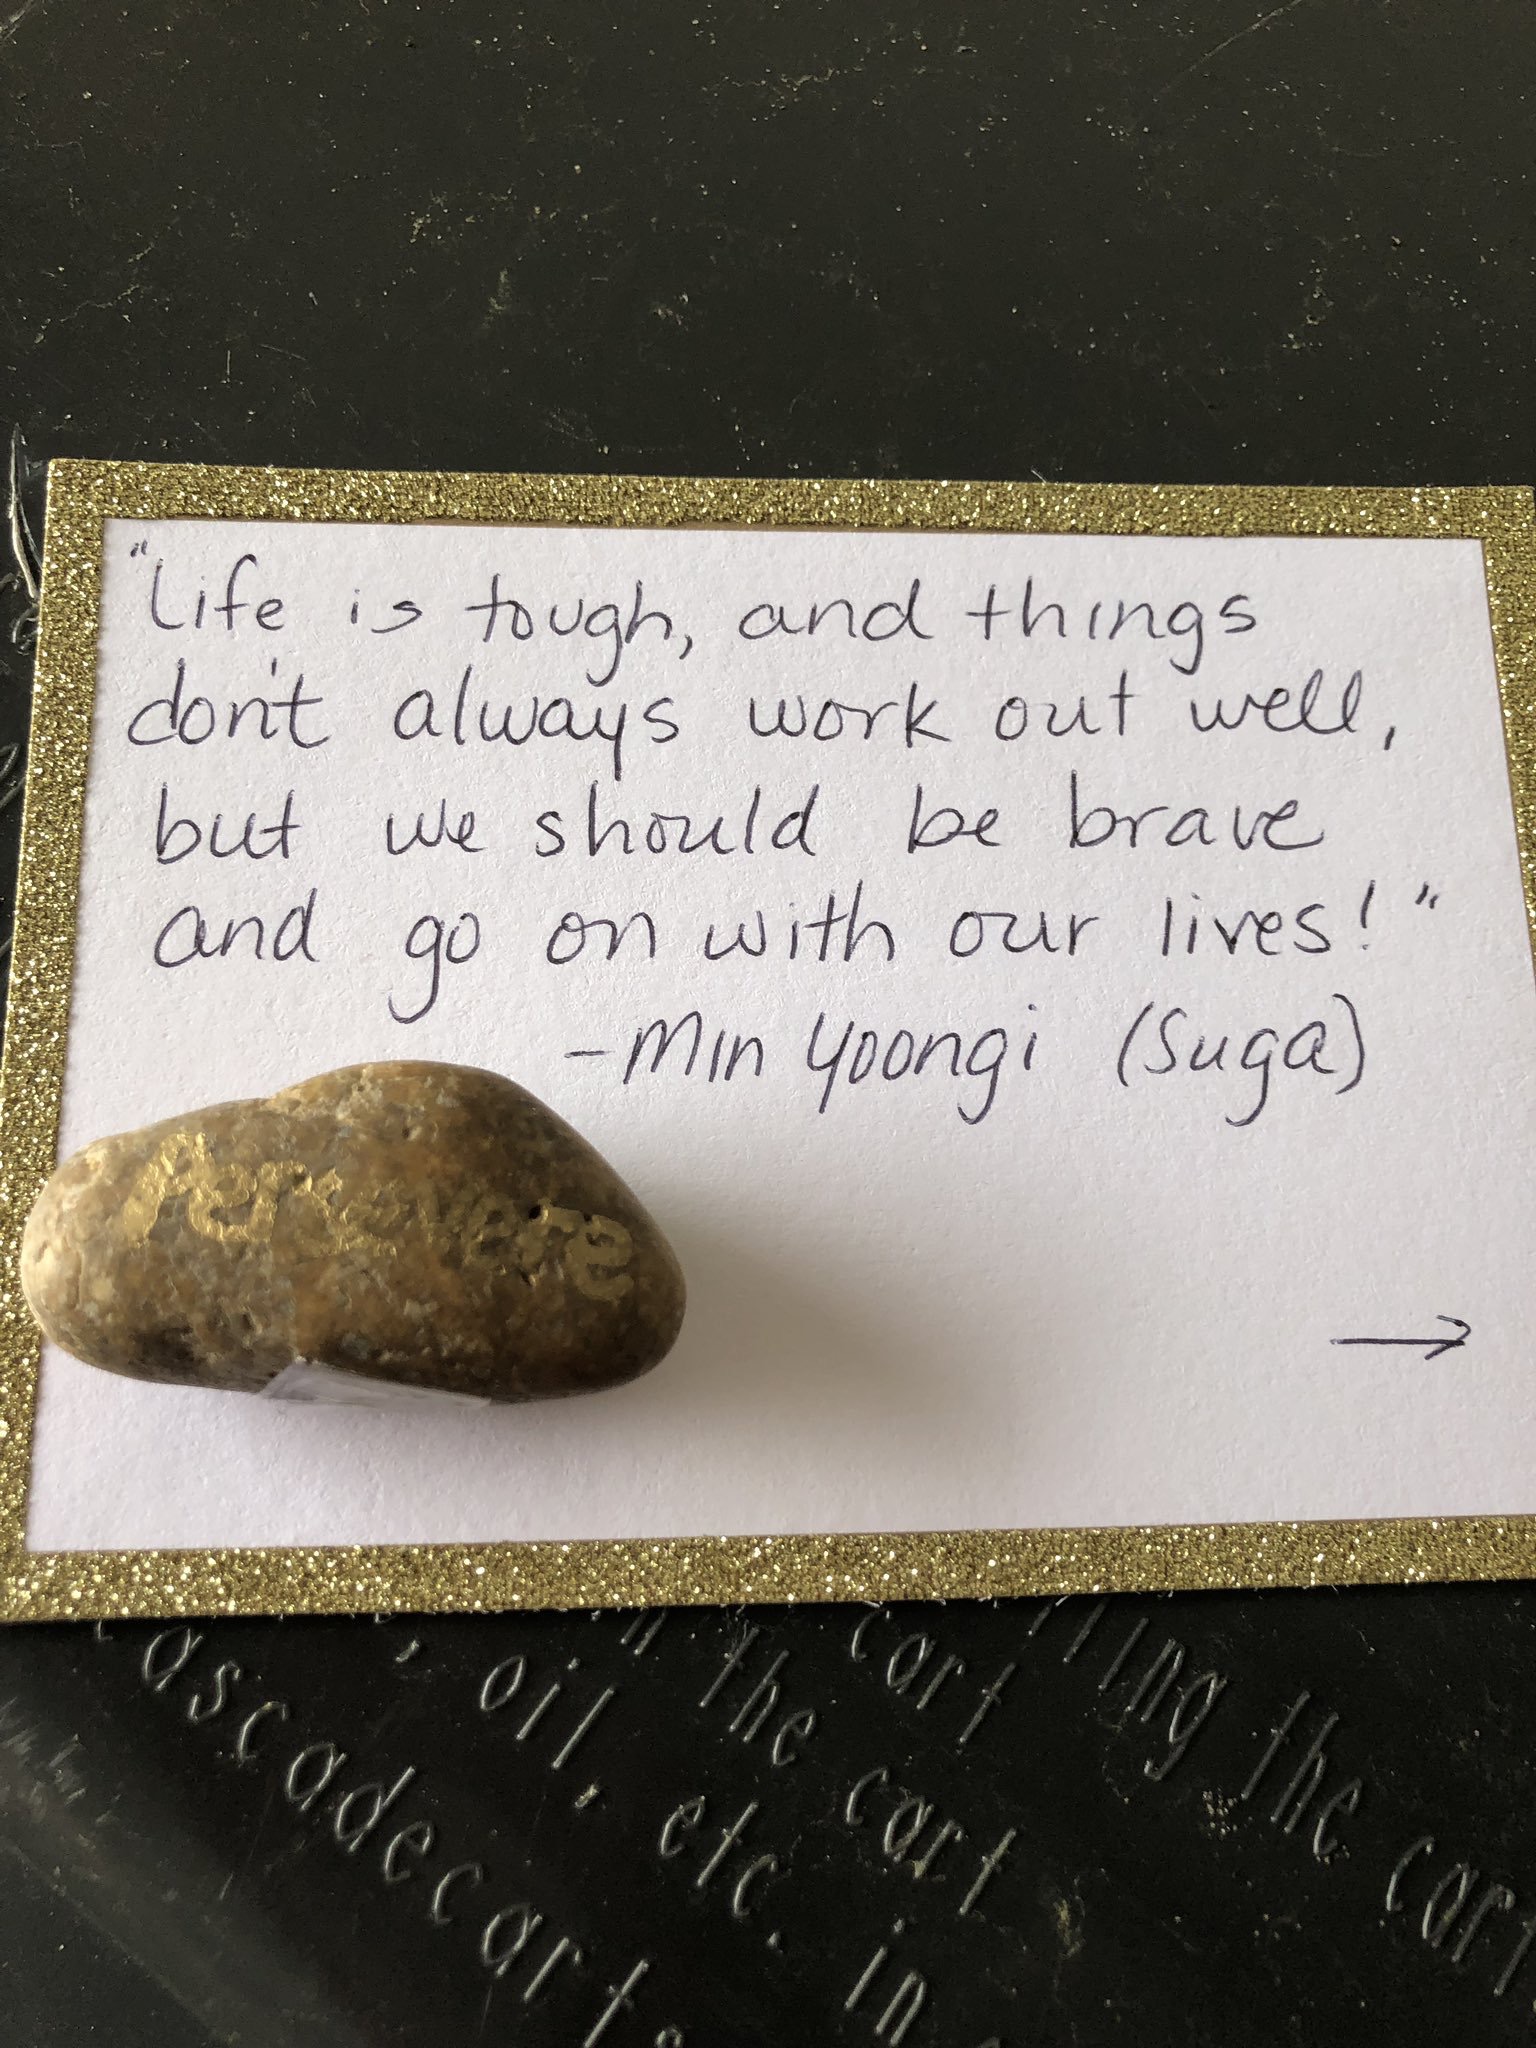 "Life is tough, and things
don't always work out well,
but we should be brave
and go on with our lives!"
-Min Yoongi (Suga)
Persevere
→
ascadecart.
, oil, etc. in
in the cart
cart
lling the cart